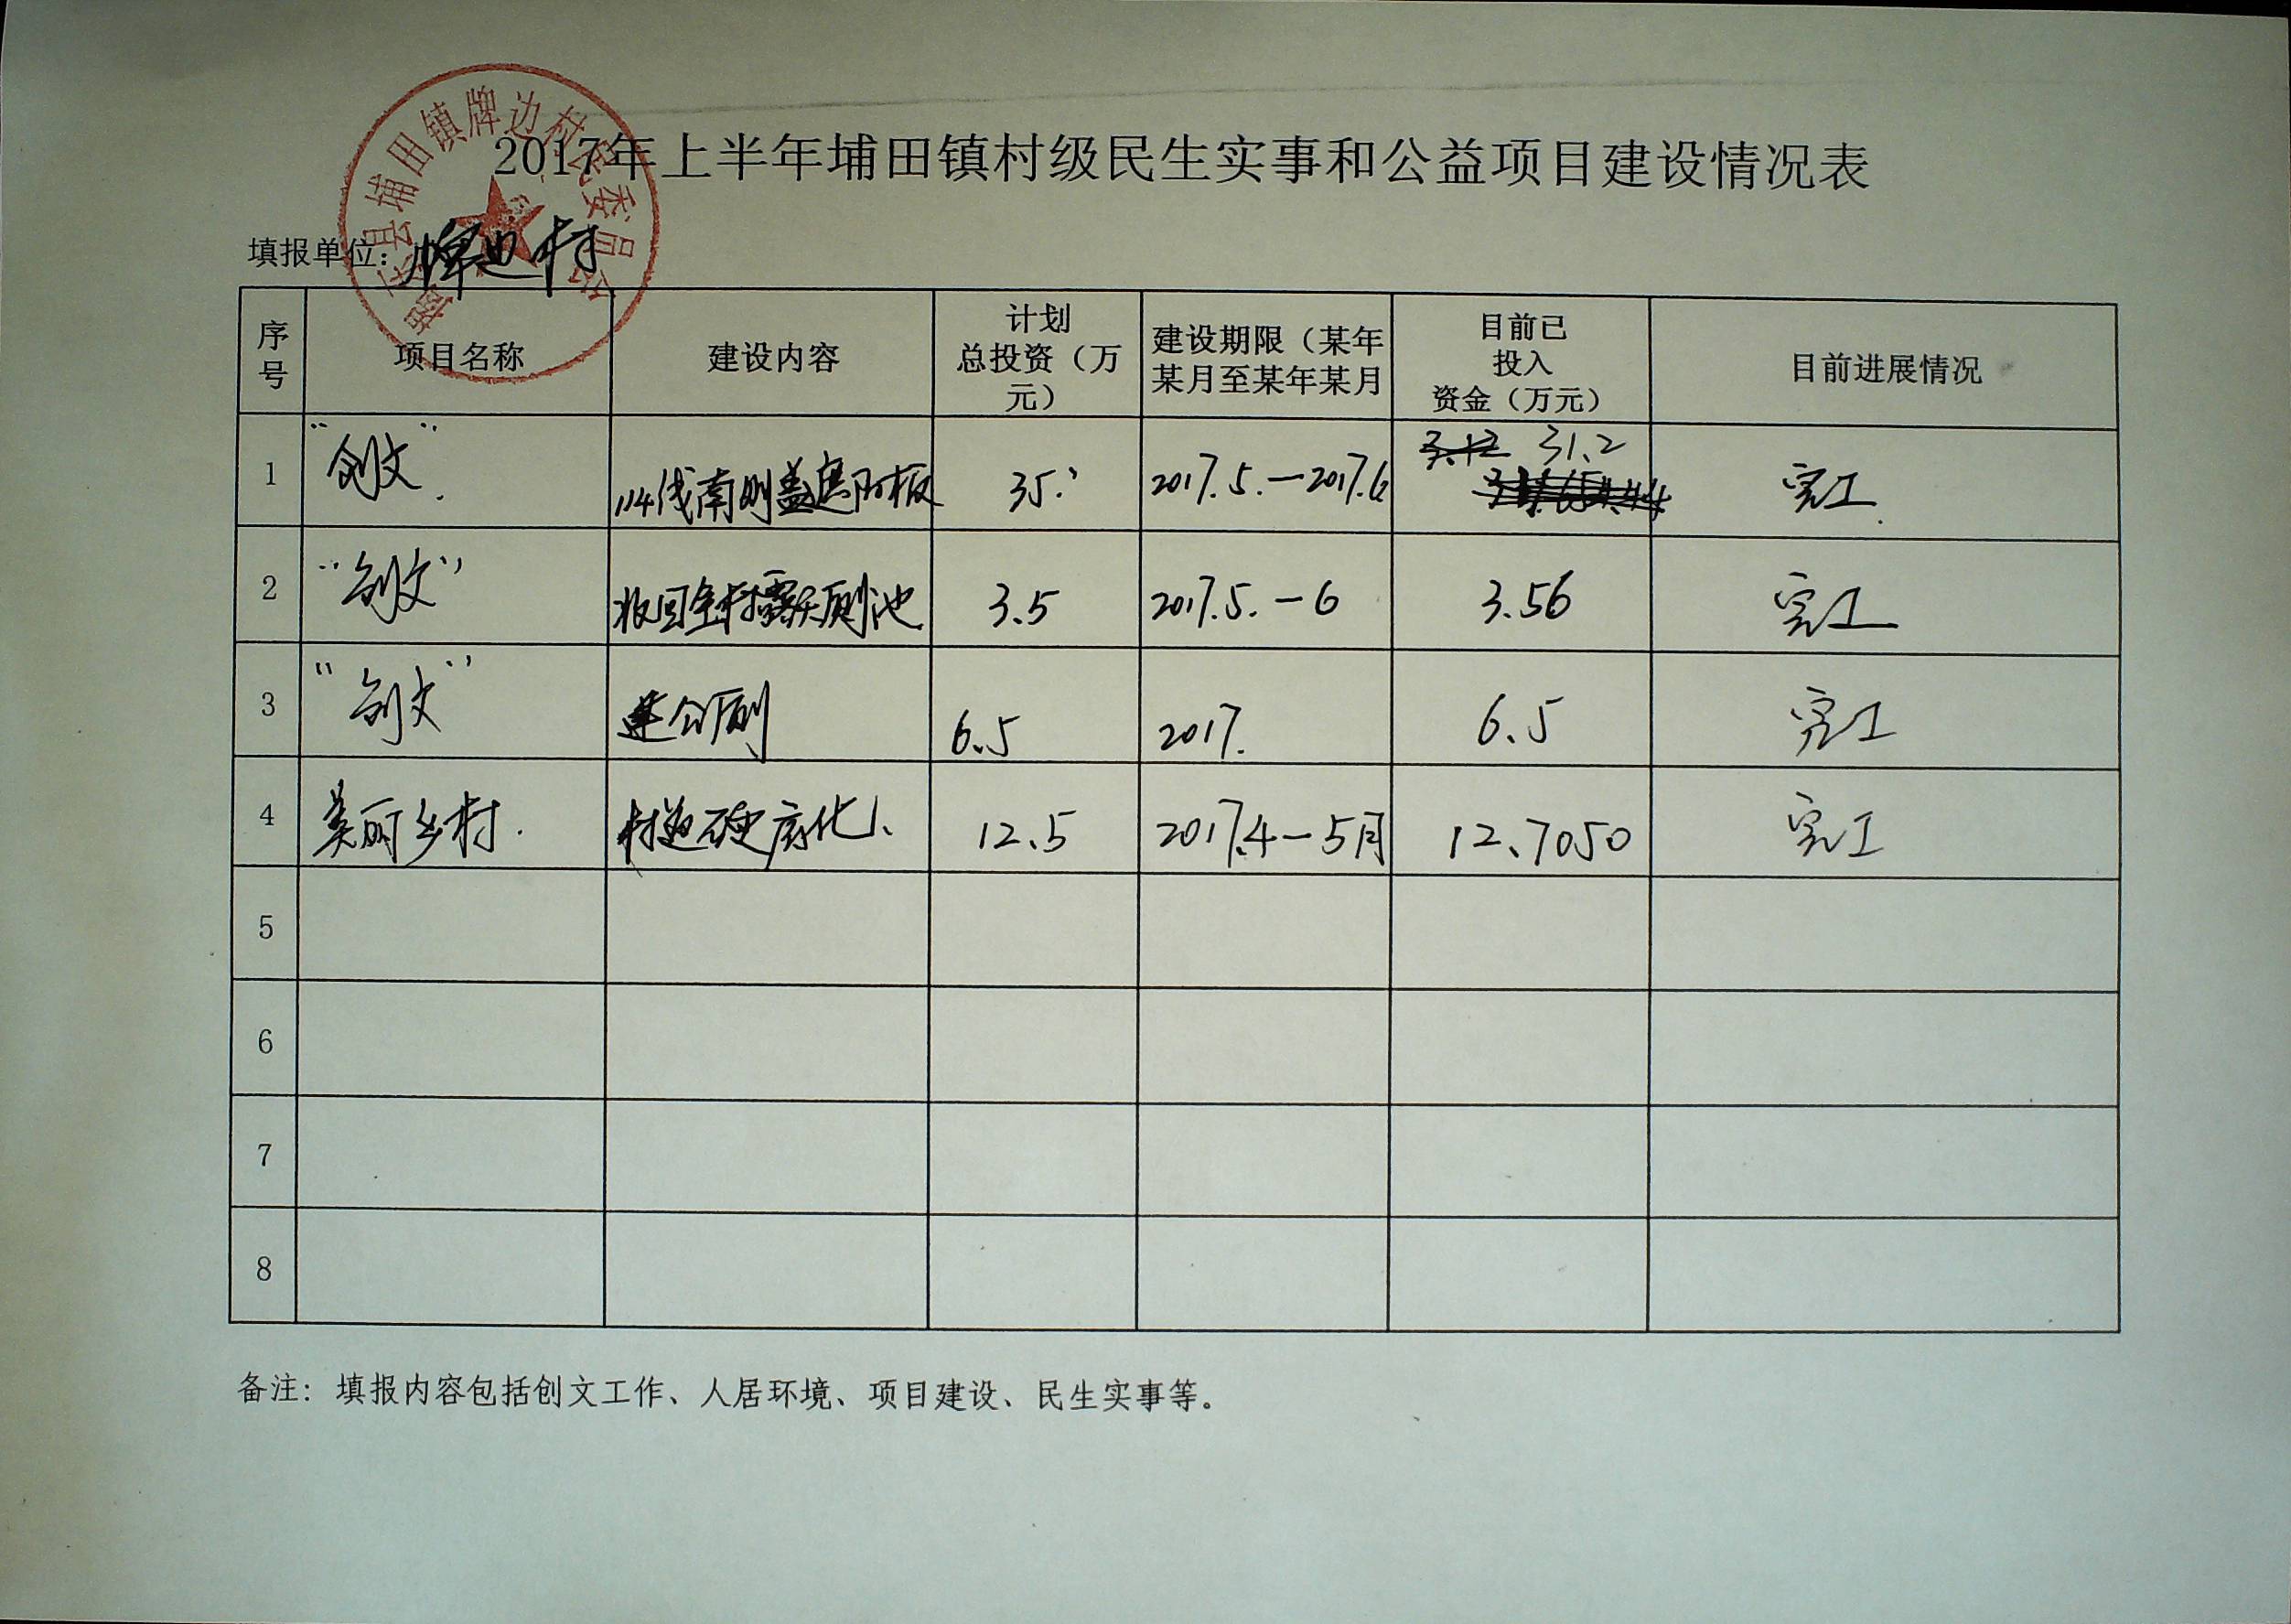 2017年上半年埔田镇村级民生实事和公益项目建设情况表
埔田镇牌边村民委员会
填报单位：牌边村
序号 项目名称 建设内容 计划总投资（万元） 建设期限（某年某月至某年某月 目前已投入资金（万元） 目前进展情况
1 “创文”. 114线南侧盖 板 35. 2017.5.—2017.6 31.2 完工.
2 “创文” 收回全村露天厕池 3.5 2017.5.—6 3.56 完工
3 “创文” 建公厕 6.5 2017. 6.5 完工
4 美丽乡村. 村道硬底化、 12.5 2017.4—5月 12.7050 完工
5
6
7
8
备注：填报内容包括创文工作、人居环境、项目建设、民生实事等。